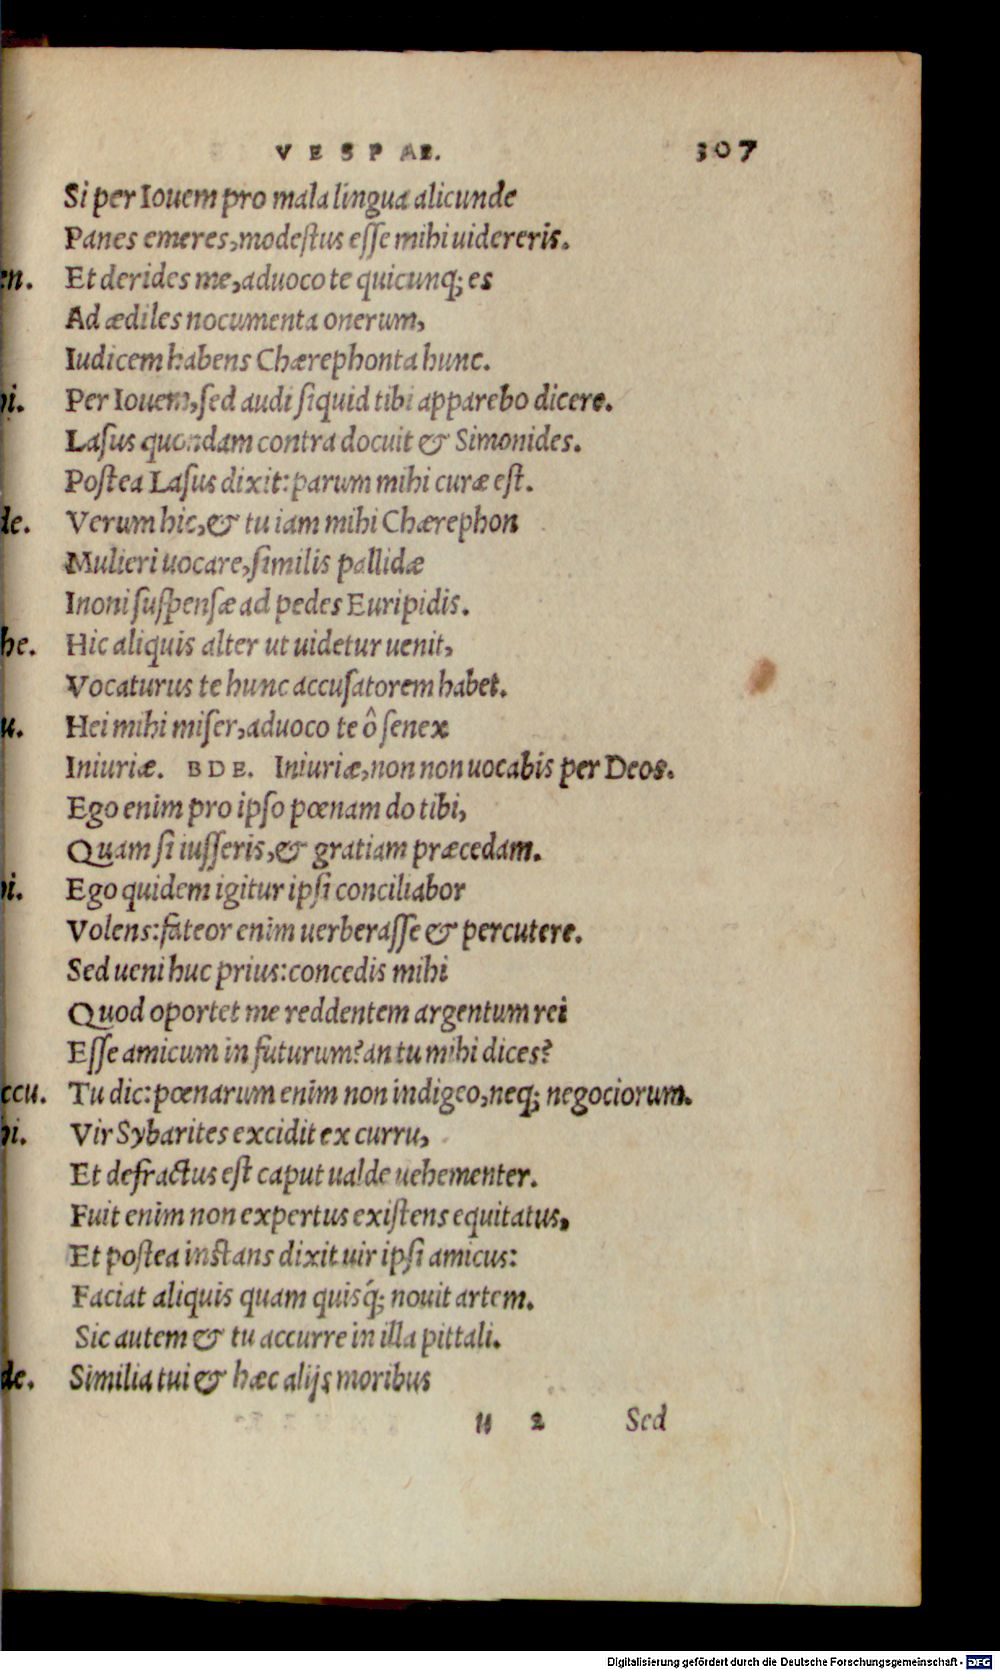 VESPAE. 307
Si per Iouem pro mala lingua alicunde
Panes emeres, modestus esse mihi uidereris.
en. Et derides me, aduoco te quicunq; es
Ad ædiles nocumenta onerum,
Iudicem habens Chærephonta hunc.
hi. Per Iouem, sed audi siquid tibi apparebo dicere.
Lasus quondam contra docuit & Simonides.
Postea Lasus dixit: parum mihi curæ est.
de. Verum hic, & tu iam mihi Chærephon
Mulieri uocare, similis pallidæ
Inoni suspensæ ad pedes Euripidis.
he. Hic aliquis alter ut uidetur uenit,
Vocaturus te hunc accusatorem habet.
u. Hei mihi miser, aduoco te ô senex
Iniuriæ. BDE. Iniuriæ, non non uocabis per Deos.
Ego enim pro ipso pœnam do tibi,
Quam si iusseris, & gratiam præcedam.
hi. Ego quidem igitur ipsi conciliabor
Volens: fateor enim uerberasse & percutere.
Sed ueni huc prius: concedis mihi
Quod oportet me reddentem argentum rei
Esse amicum in futurum? an tu mihi dices?
ccu. Tu dic: pœnarum enim non indigeo, neq; negociorum.
hi. Vir Sybarites excidit ex curru,
Et defractus est caput ualde uehementer.
Fuit enim non expertus existens equitatus.
Et postea instans dixit uir ipsi amicus:
Faciat aliquis quam quisq́; nouit artem.
Sic autem & tu accurre in illa pittali.
de. Similia tui & hæc alijs moribus
u 2 Sed
Digitalisierung gefördert durch die Deutsche Forschungsgemeinschaft - DFG